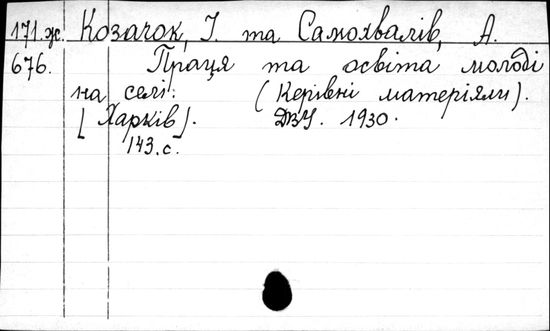 171.ж. Козачок, І. та Самохвалів, А.
676. Праця та освіта молоді
на селі. (Керівні матеріяли).
[Харків]. ДВУ. 1930.
143.с.